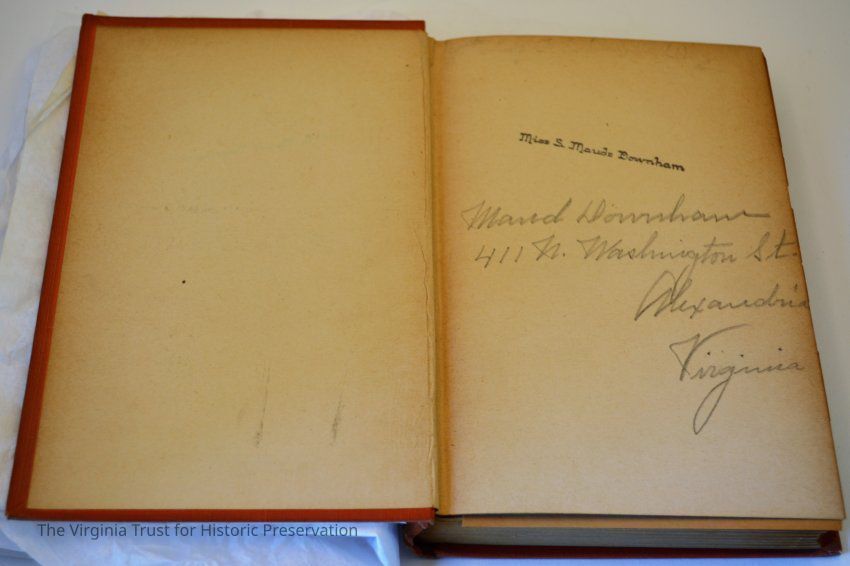 Miss S. Maude Downham
Maud Downham
411 N. Washington St.
Alexandria
Virginia
The Virginia Trust for Historic Preservation